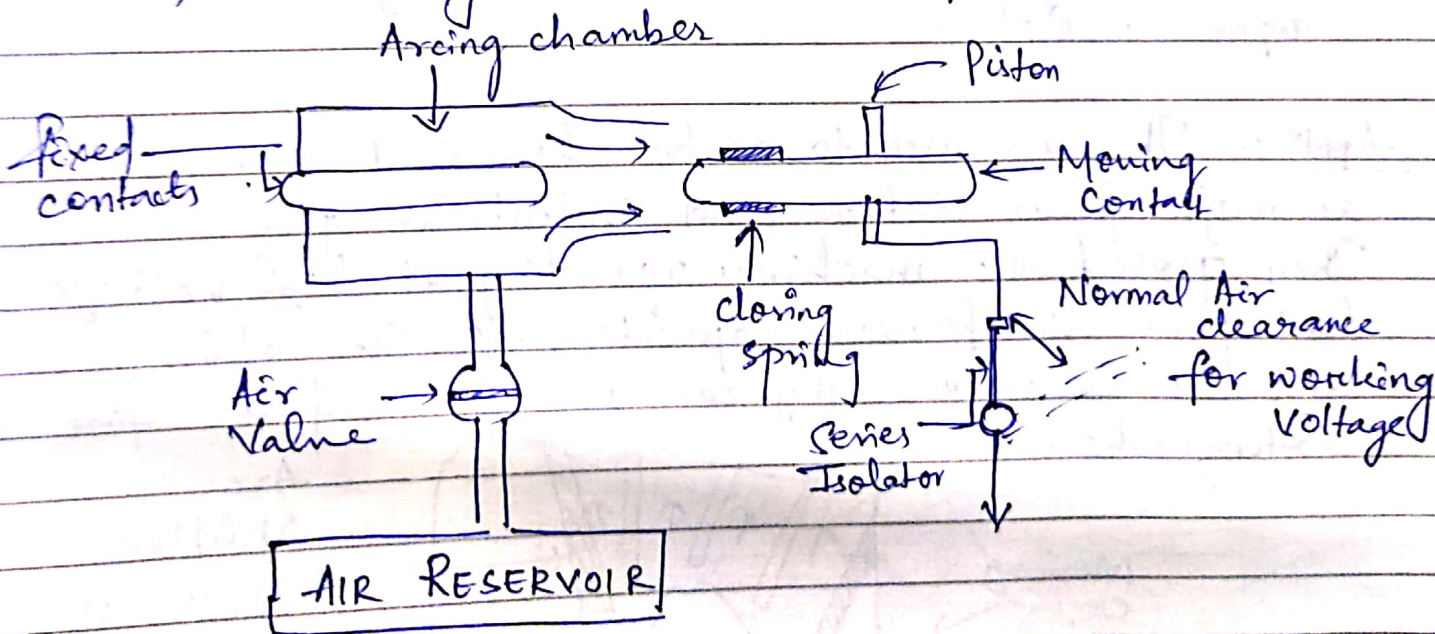 Arcing chamber
Piston
fixed
contacts
Moving
Contact
closing
spring
Normal Air
clearance
for working
Voltage
Air
Valve
Series
Isolator
AIR RESERVOIR